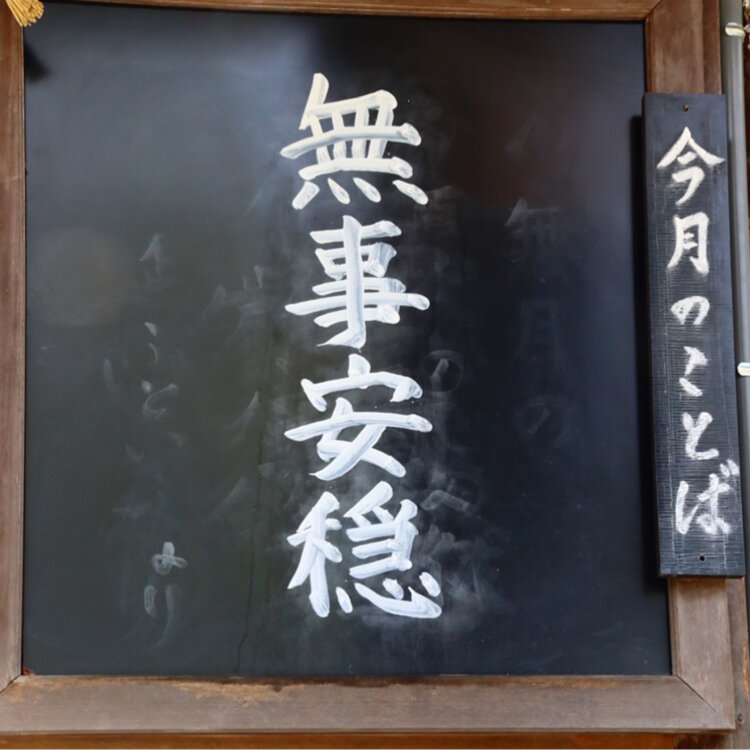 今月のことば
無事安穏